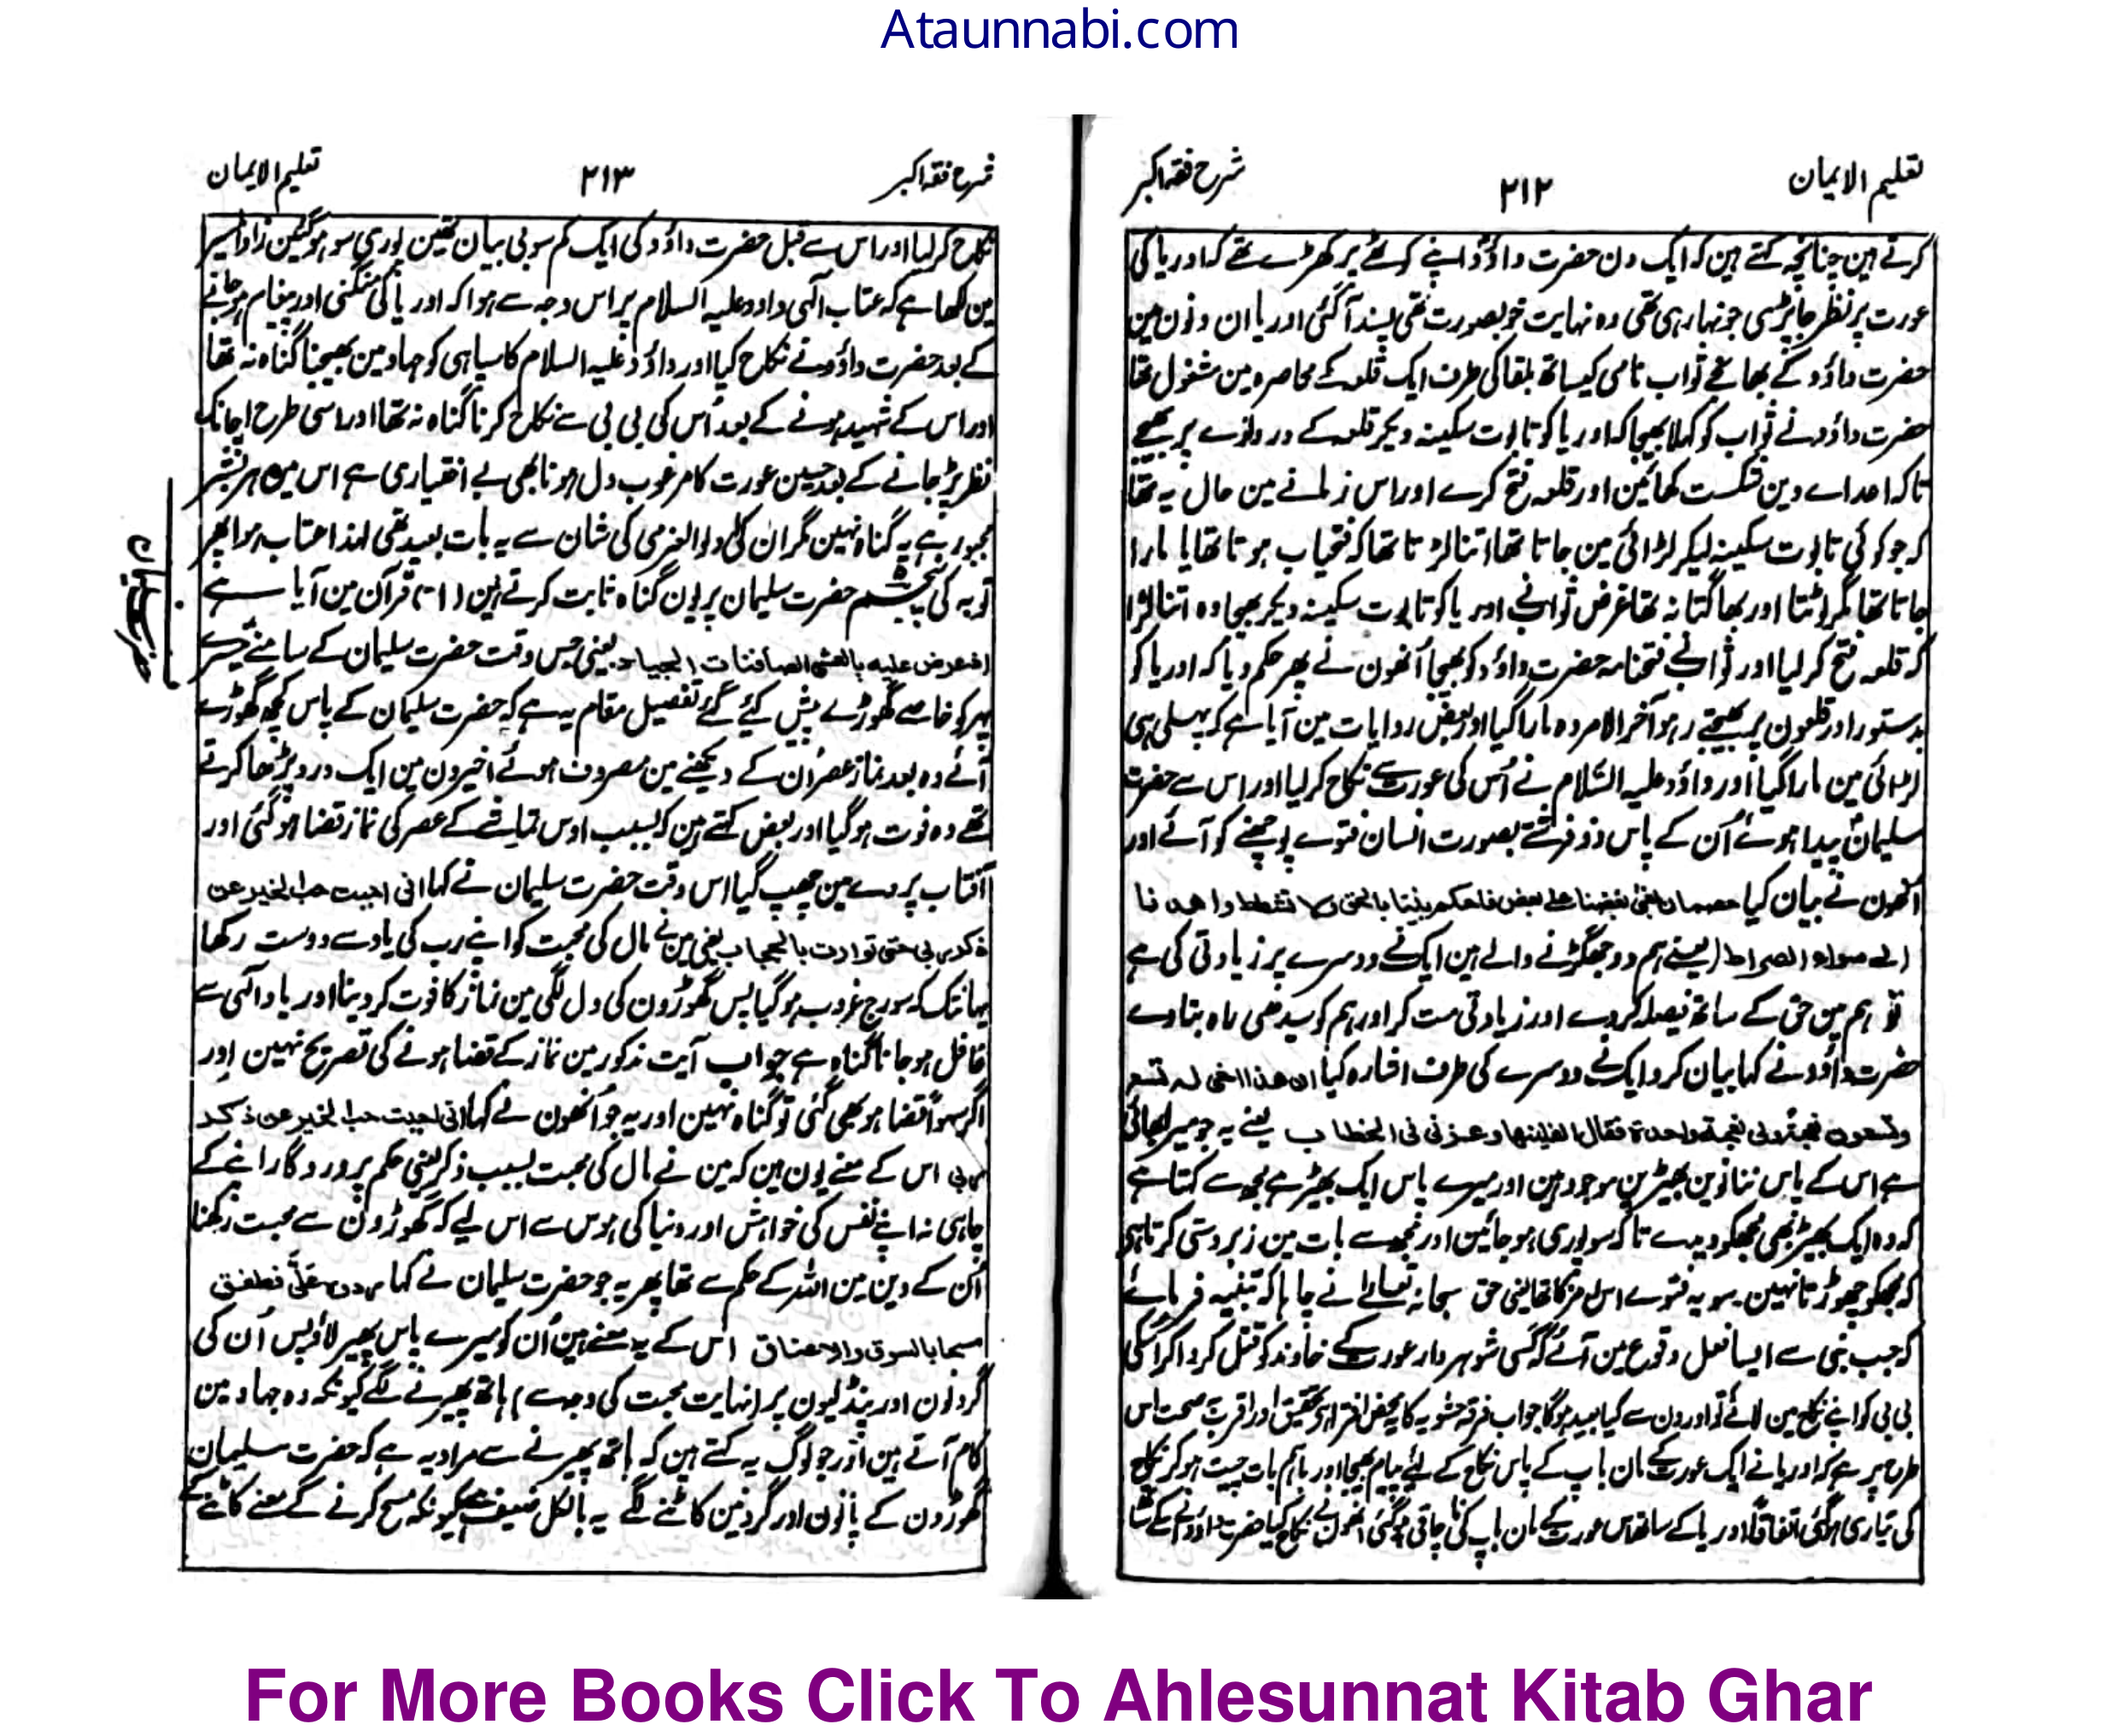 Ataunnabi.com
تعلیم الایمان ۲۱۲ شرح فقہ اکبر
کرتے ہین چنانچہ کہتے ہین کہ ایک دن حضرت داؤد اپنے کوٹھے پر کھڑے تھے کہ اوریا کی
عورت پر نظر جا پڑی جو نہا رہی تھی وہ نہایت خوبصورت تھی پسند آگئی اوریا ان دنون مین
حضرت داؤد کے بھانجے ثواب نامی کیساتھ بلقا کی طرف ایک قلعہ کے محاصرہ مین مشغول تھا
حضرت داؤد نے ثواب کو کہلا بھیجا کہ اوریا کو تابوت سکینہ دیکر قلعہ کے دروازے پر بھیجے
تاکہ اعداے دین شکست کھائین اور قلعہ فتح کرے اور اس زمانے مین حال یہ تھا
کہ جو کوئی تابوت سکینہ لیکر لڑائی مین جاتا تھا اتنا لڑتا تھا کہ فتحیاب ہوتا تھا یا مارا
جاتا تھا مگر لوٹتا اور بھاگتا نہ تھا غرض ثواب نے اوریا کو تابوت سکینہ دیکر بھیجا وہ اتنا لڑا
کہ قلعہ فتح کر لیا اور ثواب نے فتحنامہ حضرت داؤد کو بھیجا اُنھون نے پھر حکم دیا کہ اوریا کو
بدستور اور قلعون پر بھیجتے رہو آخر الامر وہ مارا گیا اور بعض روایات مین آیا ہے کہ پہلی ہی
لڑائی مین مارا گیا اور داؤد علیہ السلام نے اُس کی عورت سے نکاح کر لیا اور اس سے حضرت
سلیمان پیدا ہوئے اُن کے پاس دو فرشتے بصورت انسان فتوے پوچھنے کو آئے اور
اُنھون نے بیان کیا خصمان بغی بعضنا علی بعض فاحکم بیننا بالحق ولا تشطط واھدنا
الی سواء الصراط (یعنے ہم دو جھگڑنے والے ہین ایک نے دوسرے پر زیادتی کی ہے
تو ہم مین حق کے ساتھ فیصلہ کردے اور زیادتی مت کر اور ہم کو سیدھی راہ بتادے
حضرت داؤد نے کہا بیان کرو ایک نے دوسرے کی طرف اشارہ کیا ان ھذا اخی لہ تسع
وتسعون نعجۃ ولی نعجۃ واحدۃ فقال اکفلنیھا وعزنی فی الخطاب یعنے یہ جو میرا بھائی
ہے اس کے پاس ننانوین بھیڑین موجود ہین اور میرے پاس ایک بھیڑ ہے مجھ سے کہتا ہے
کہ وہ ایک بھیڑ بھی مجھکو دیدے تاکہ سو پوری ہو جائین اور مجھ سے بات مین زبردستی کرتا ہی
کہ مجھکو چھوڑتا نہین۔ سو یہ فتوے اس امر کا تھا یعنی حق سبحانہ تعالے نے چاہا کہ تنبیہ فرمائے
کہ جب نبی سے ایسا فعل وقوع مین آئے کہ کسی شوہر دار عورت کے خاوند کو قتل کروا کر اسکی
بی بی کو اپنے نکاح مین لائے تو اورون سے کیا بعید ہوگا جواب فرقہ حشویہ کا یہ محض افترا ہی تحقیق اور اقرب بصحت اس
طرح پر ہے کہ اوریا نے ایک عورت کے مان باپ کے پاس نکاح کے لئے پیام بھیجا اور باہم بات چیت ہو کر نکاح
کی تیاری ہوگئی اتفاقاً اوریا کے ساتھ اس عورت کے مان باپ کی ناچاقی ہوگئی اُنھون نے نکاح کیا حضرت داؤد نے
شرح فقہ اکبر ۲۱۳ تعلیم الایمان
نکاح کر لیا اور اس سے قبل حضرت داؤد کی ایک کم سو بی بیان تھین پوری سو ہوگئین زاد المسیر
مین لکھا ہے کہ عتاب الٰہی داود علیہ السلام پر اس وجہ سے ہوا کہ اوریا کی منگنی اور پیغام ہو جانے
کے بعد حضرت داؤد نے نکاح کیا اور داؤد علیہ السلام کا سپاہی کو جہاد مین بھیجنا گناہ نہ تھا
اور اس کے شہید ہونے کے بعد اُس کی بی بی سے نکاح کرنا گناہ نہ تھا اور اسی طرح اچانک
نظر پڑ جانے کے بعد حسین عورت کا مرغوب دل ہونا بھی بے اختیاری ہے اس مین ہر بشر
مجبور ہے یہ گناہ نہین مگر ان کی اولوالعزمی کی شان سے یہ بات بعید تھی لہذا عتاب ہوا پھر
توبہ کی پنجم حضرت سلیمان پر یون گناہ ثابت کرتے ہین (۱) قرآن مین آیا ہے
اذ عرض علیہ بالعشی الصافنات الجیاد یعنی جس وقت حضرت سلیمان کے سامنے تیسرے
پہر کو خاصے گھوڑے پیش کئے گئے تفصیل مقام یہ ہے کہ حضرت سلیمان کے پاس کچھ گھوڑے
آئے وہ بعد نماز عصر اُن کے دیکھنے مین مصروف ہوئے اخیر دن مین ایک ورد پڑھا کرتے
تھے وہ فوت ہو گیا اور بعض کہتے ہین کہ بسبب اوس تماشے کے عصر کی نماز قضا ہو گئی اور
آفتاب پردے مین چھپ گیا اس وقت حضرت سلیمان نے کہا انی احببت حب الخیر عن
ذکر ربی حتی توارت بالحجاب یعنی مین نے مال کی محبت کو اپنے رب کی یاد سے دوست رکھا
یہانتک کہ سورج غروب ہو گیا پس گھوڑون کی دل لگی مین نماز کا فوت کر دینا اور یاد الٰہی سے
غافل ہو جانا گناہ ہے جواب آیت مذکور مین نماز کے قضا ہونے کی تصریح نہین اور
اگر سہواً قضا ہو بھی گئی تو گناہ نہین اور یہ جو اُنھون نے کہا انی احببت حب الخیر عن ذکر
ربی اس کے معنے یون ہین کہ مین نے مال کی محبت بسبب ذکر یعنی حکم پروردگار اپنے کے
چاہی نہ اپنے نفس کی خواہش اور دنیا کی ہوس سے اس لیے کہ گھوڑون سے محبت رکھنا
اُن کے دین مین اللہ کے حکم سے تھا پھر یہ جو حضرت سلیمان نے کہا ردوھا علیّ فطفق
مسحا بالسوق والاعناق اس کے یہ معنے ہین اُن کو میرے پاس پھیر لاؤ پس اُن کی
گردنون اور پنڈلیون پر (نہایت محبت کی وجہ سے) ہاتھ پھیرنے لگے کیونکہ وہ جہاد مین
کام آتے ہین اور جو لوگ یہ کہتے ہین کہ ہاتھ پھیرنے سے مراد یہ ہے کہ حضرت سلیمان
گھوڑون کے پانون اور گردنین کاٹنے لگے یہ بالکل ضعیف ہے کیونکہ مسح کرنے کے معنے کاٹنے کے
For More Books Click To Ahlesunnat Kitab Ghar